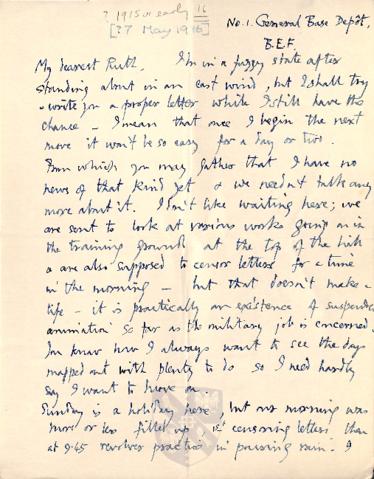 ? 1915 or early 16
[? 7 May 1916]
No. 1. General Base Depôt,
B.E.F.
My dearest Ruth. I'm in a foggy state after
standing about in an east wind, but I shall try
& write you a proper letter while I still have the
chance – I mean that once I begin the next
move it won't be so easy for a day or two.
From which you may gather that I have no
news of that kind yet & we needn't talk any
more about it. I don't like waiting here; we
are sent to look at various works going on in
the training ground at the top of the hill
& are also supposed to censor letters for a time
in the morning – but that doesn't make a
life – it is practically an existence of suspended
animation so far as the military job is concerned.
You know how I always want to see the days
mapped out with plenty to do so I need hardly
say I want to move on.
Sunday is a holiday here, but our morning was
more or less filled up in censoring letters then
at 9.45 revolver practice in pouring rain. I